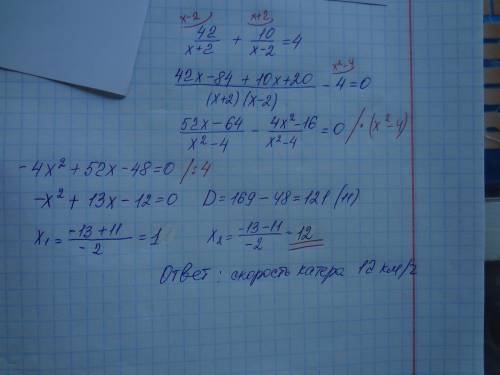 x-2 x+2
42/(x+2) + 10/(x-2) = 4
x²-4
(42x-84+10x+20)/((x+2)(x-2)) - 4 = 0
(52x-64)/(x²-4) - (4x²-16)/(x²-4) = 0 /·(x²-4)
-4x²+52x-48=0 /:4
-x²+13x-12=0 D=169-48=121 (11)
x₁=(-13+11)/(-2)=1 x₂=(-13-11)/(-2)=12
Ответ: скорость катера 12 км/ч